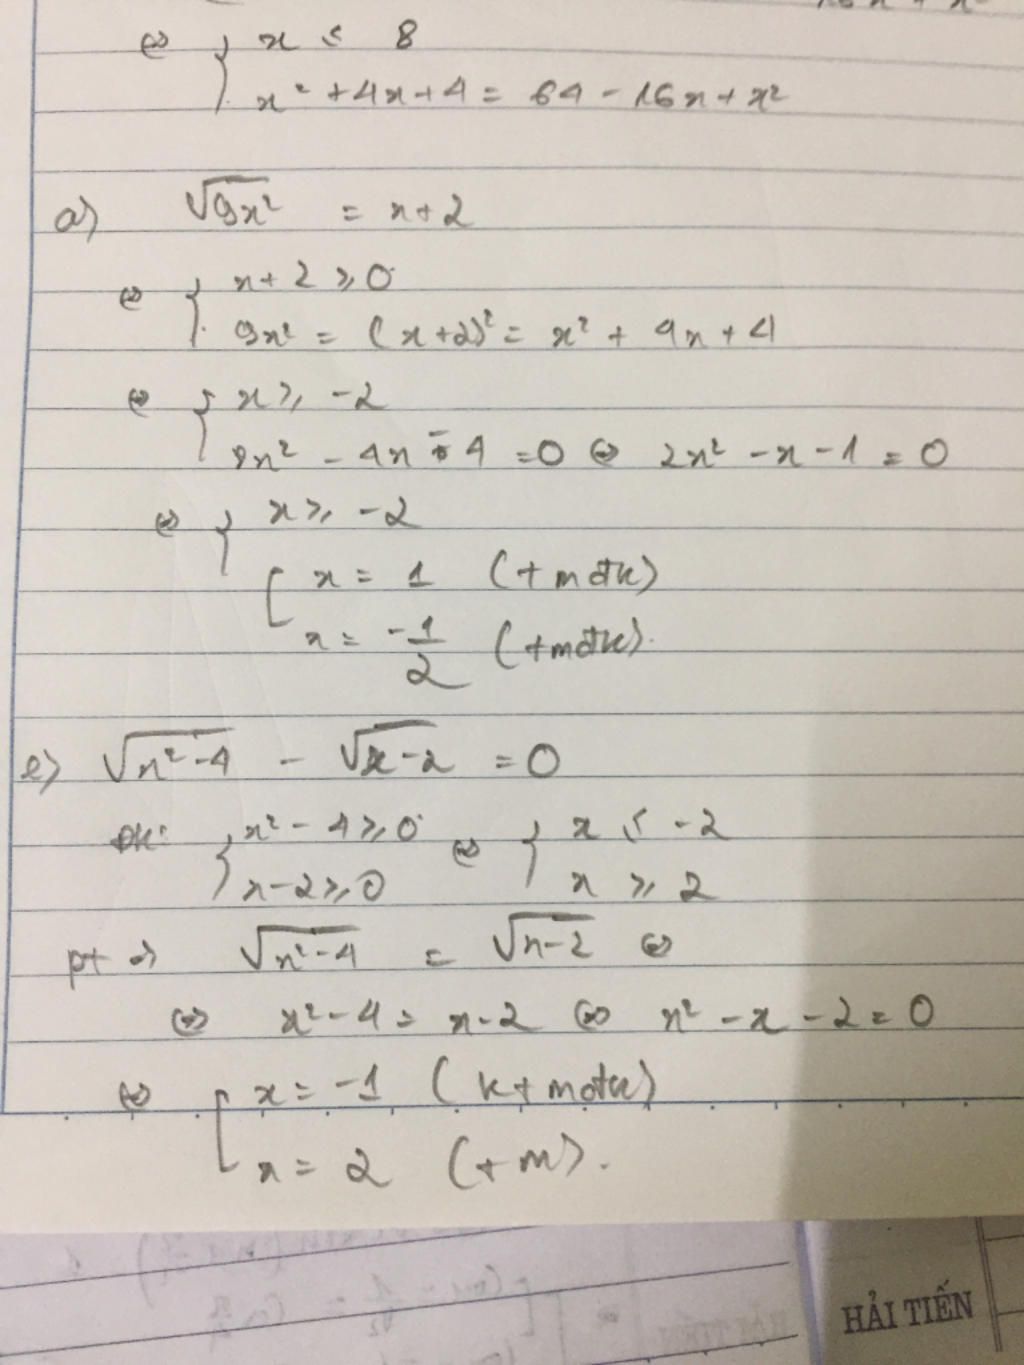 ⇔ { x ≤ 8
x² + 4x + 4 = 64 - 16x + x²
a) √9x² = x + 2
⇔ { x + 2 ≥ 0
9x² = (x+2)² = x² + 4x + 4
⇔ { x ≥ -2
8x² - 4x - 4 = 0 ⇔ 2x² - x - 1 = 0
⇔ { x ≥ -2
[ x = 1 (tmđk)
x = -1/2 (tmđk).
e) √x²-4 - √x-2 = 0
ĐK: { x² - 4 ≥ 0 ⇔ { x ≤ -2
x - 2 ≥ 0 x ≥ 2
pt √x²-4 = √x-2 ⇔
⇔ x² - 4 = x - 2 ⇔ x² - x - 2 = 0
⇔ [ x = -1 (ktmđk)
x = 2 (tm).
HẢI TIẾN